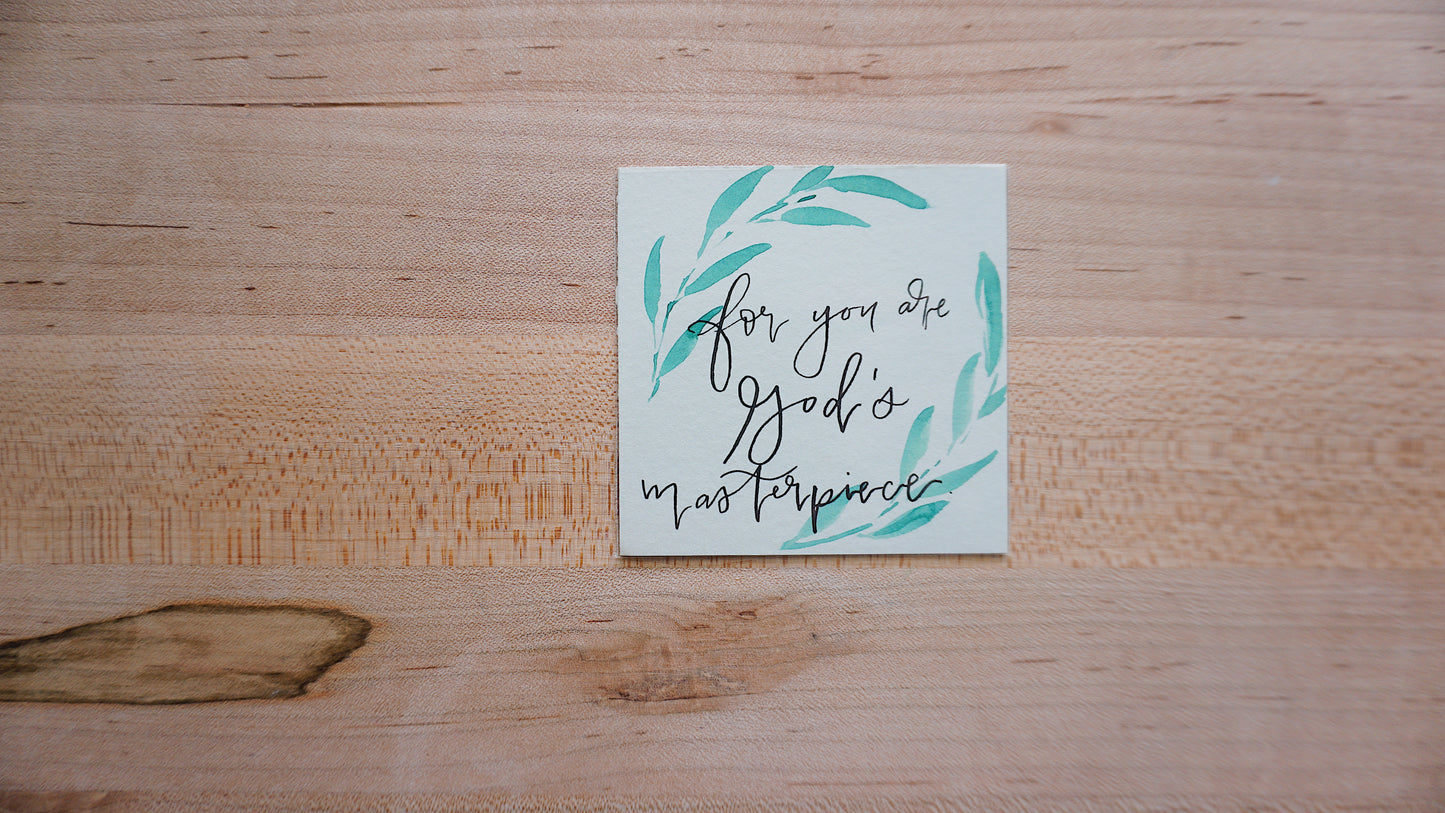 for you are
God's
masterpiece.